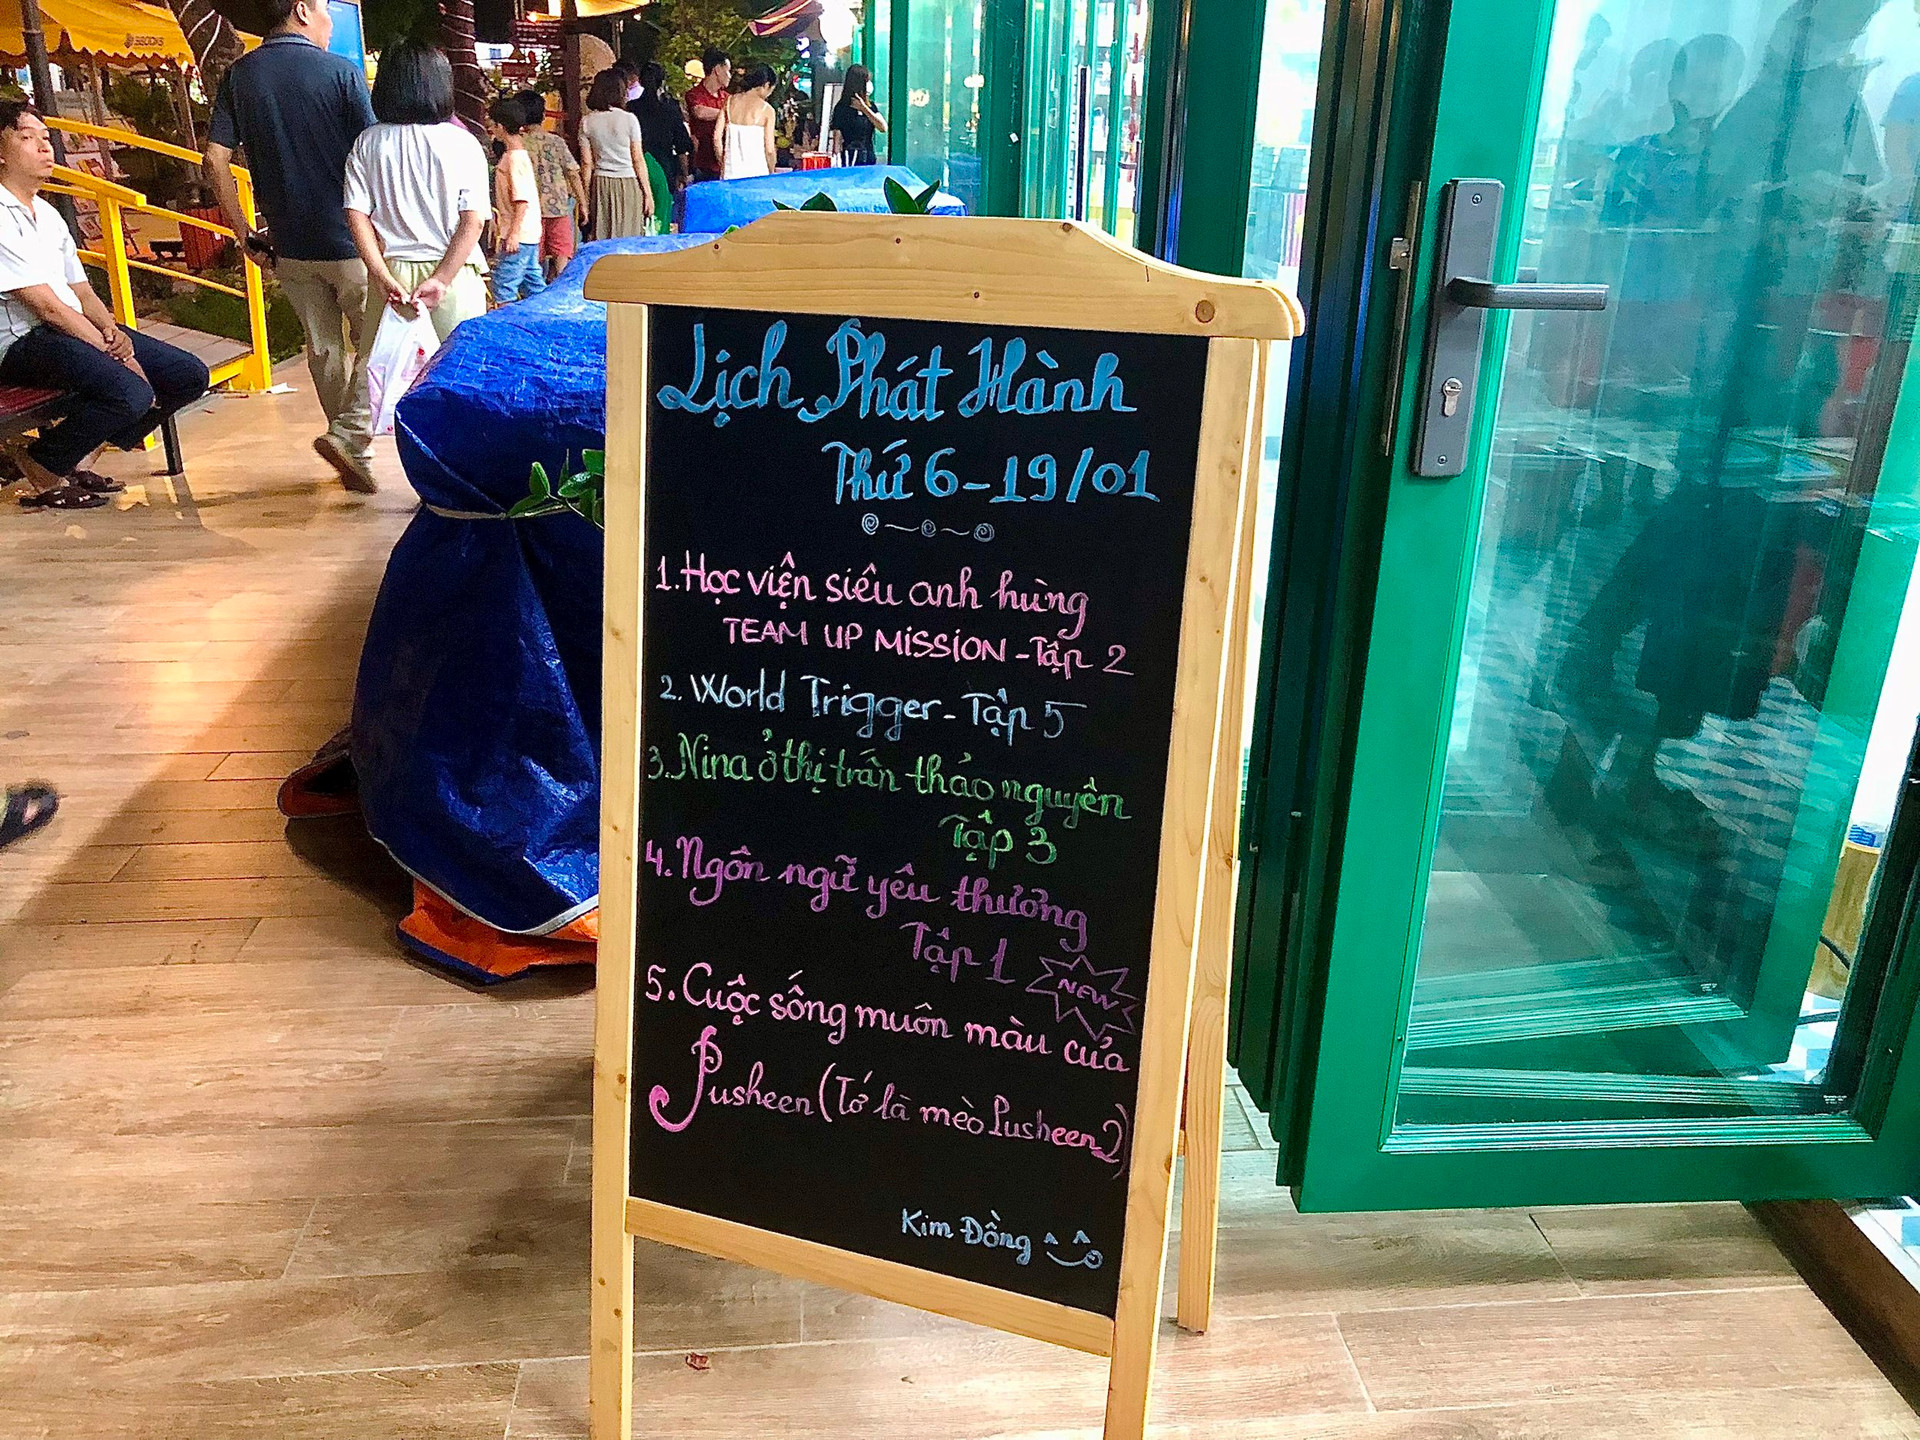 SBOOKS
Lịch Phát Hành
Thứ 6-19/01
1. Học viện siêu anh hùng
TEAM UP MISSION - Tập 2
2. World Trigger - Tập 5
3. Nina ở thị trấn thảo nguyên
Tập 3
4. Ngôn ngữ yêu thương
Tập 1 NEW
5. Cuộc sống muôn màu của
Pusheen (Tớ là mèo Pusheen 2)
Kim Đồng